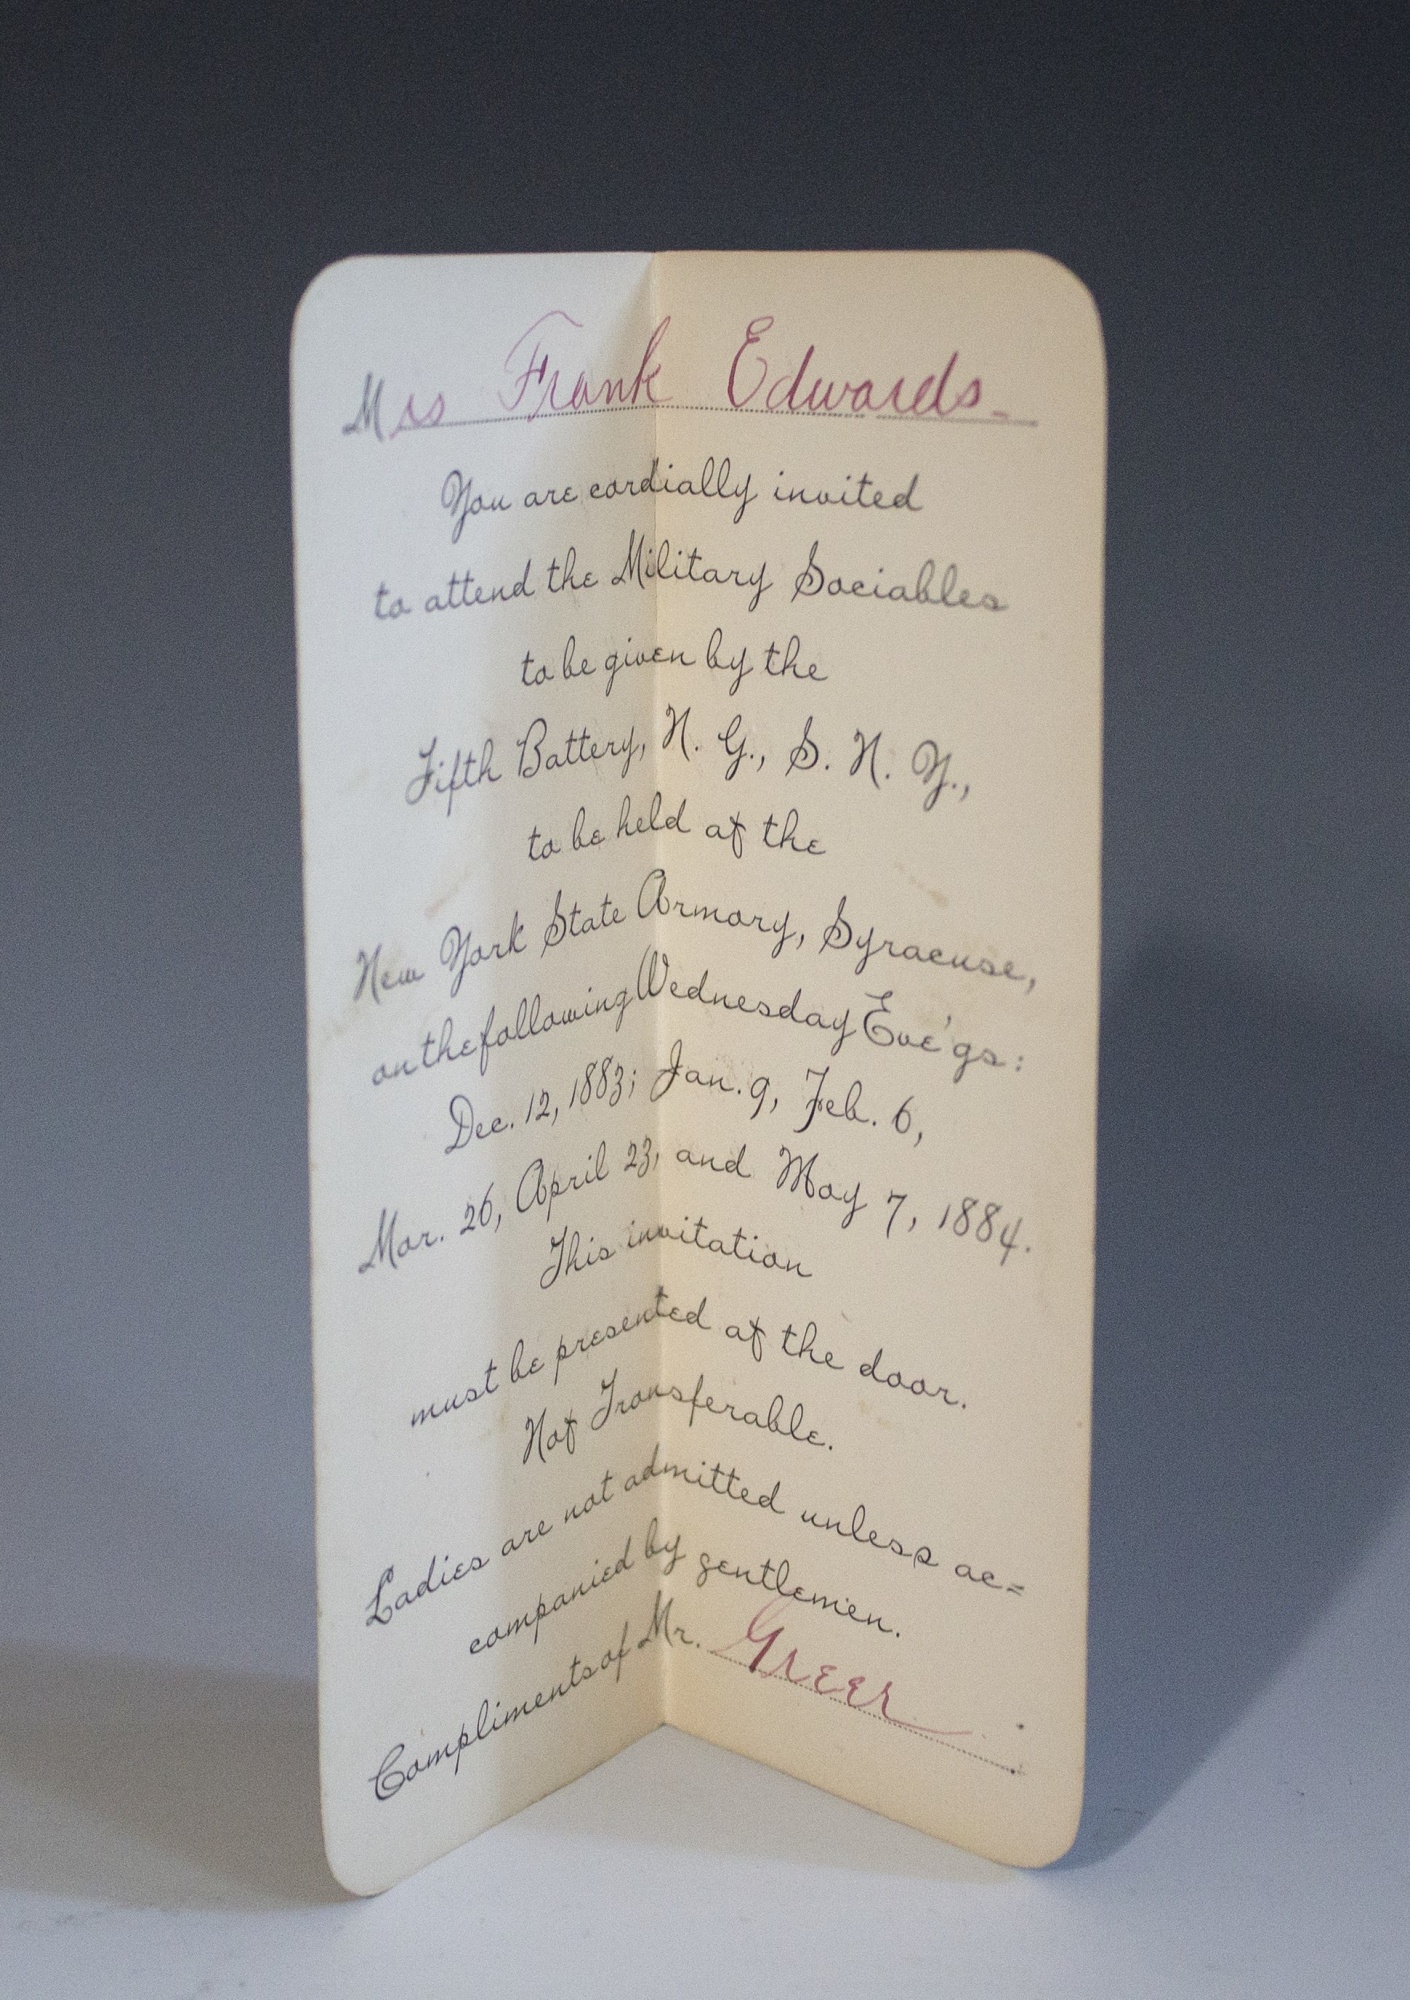 Mrs Frank Edwards.
You are cordially invited
to attend the Military Sociables
to be given by the
Fifth Battery, N. G., S. N. Y.,
to be held at the
New York State Armory, Syracuse,
on the following Wednesday Eve'gs:
Dec. 12, 1883; Jan. 9, Feb. 6,
Mar. 26, April 23, and May 7, 1884.
This invitation
must be presented at the door.
Not Transferable.
Ladies are not admitted unless ac=
companied by gentlemen.
Compliments of Mr. Greer